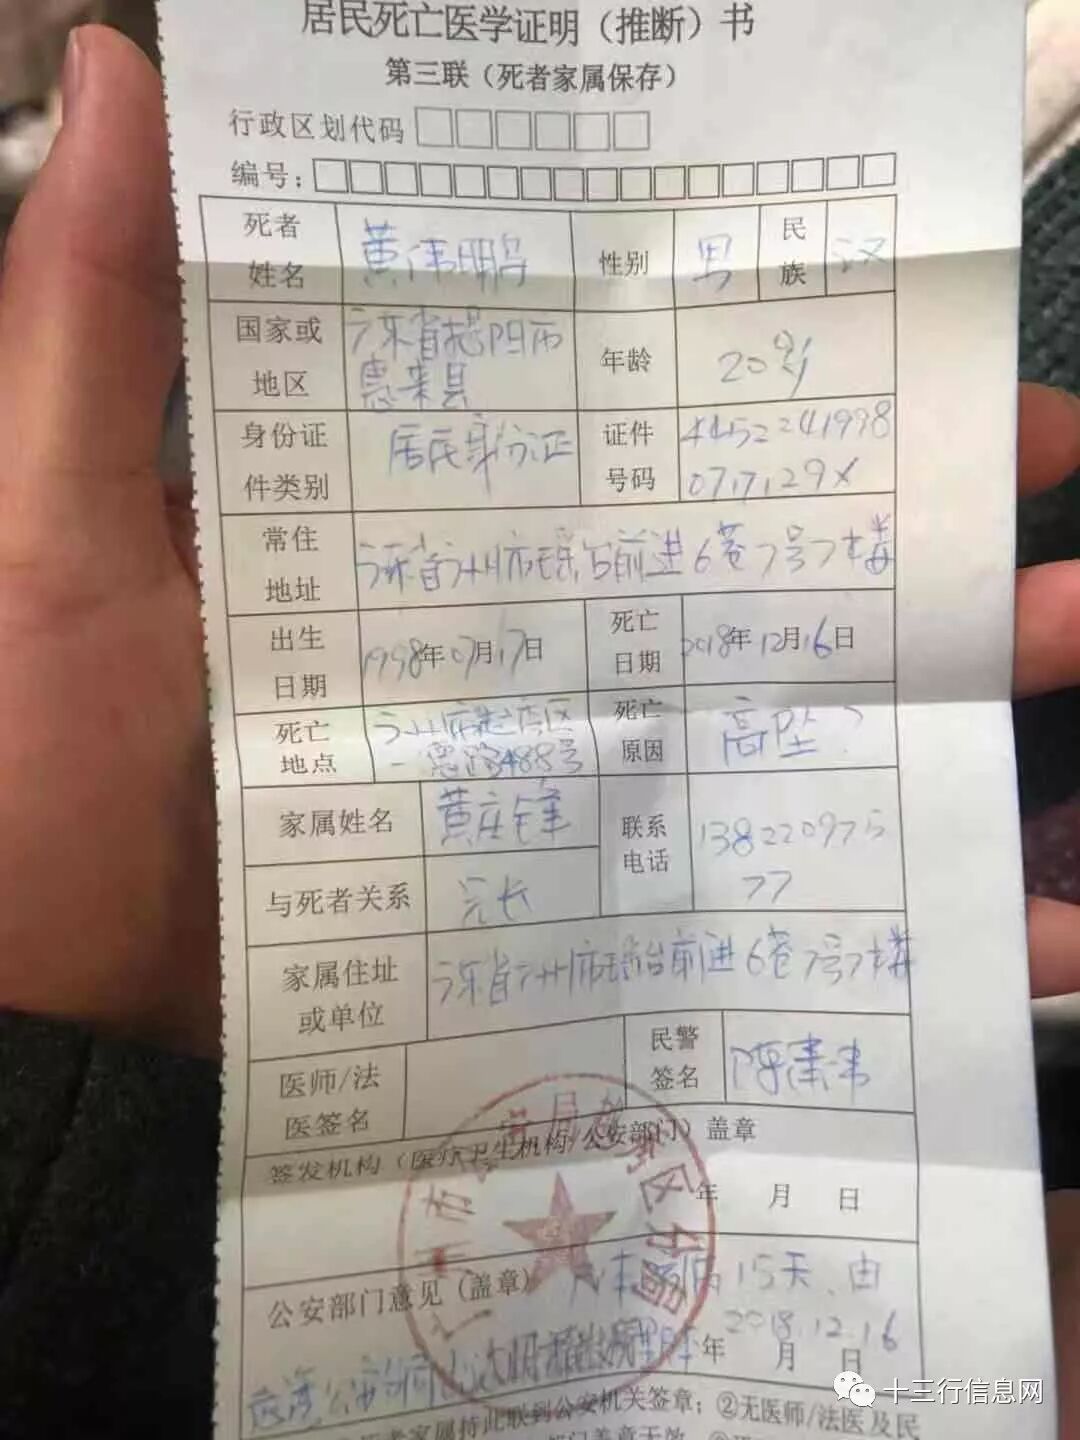 居民死亡医学证明（推断）书
第三联（死者家属保存）
行政区划代码
编号：
死者姓名 黄伟鹏 性别 男 民族 汉
国家或地区 广东省揭阳市惠来县 年龄 20岁
身份证件类别 居民身份证 证件号码 44522419980717129X
常住地址 广东省广州市瑶台前进6巷7号7楼
出生日期 1998年07月17日 死亡日期 2018年12月16日
死亡地点 广州市越秀区一德路488号 死亡原因 高坠？
家属姓名 黄庄锋 联系电话 13822097577
与死者关系 兄长
家属住址或单位 广东省广州市瑶台前进6巷7号7楼
医师/法医签名 民警签名
签发机构（医疗卫生机构/公安部门）盖章
年 月 日
公安部门意见（盖章） 15天、由
2018年12月16日
死者家属持此联到公安机关签章；②无医师/法医及民
部门盖章无效
十三行信息网